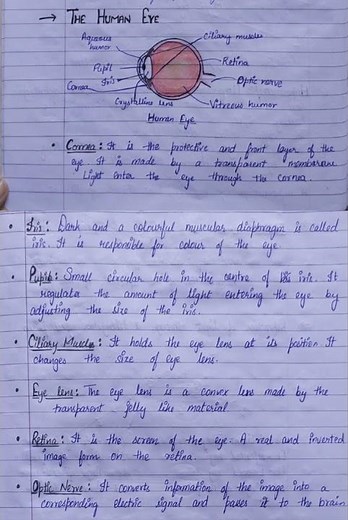 → The Human Eye
Aqueous humor
Ciliary muscles
Pupil
Retina
Iris
Optic nerve
Cornea
Crystalline lens
Vitreous humor
Human Eye
• Cornea: It is the protective and front layer of the
eye It is made by a transparent membrane
Light enter the eye through the cornea.
• Iris: Dark and a colourful muscular diaphragm is called
iris. It is responsible for colour of the eye
• Pupil: Small circular hole in the centre of iris. It
regulate the amount of light entering the eye by
adjusting the size of the iris.
• Ciliary Muscle: It holds the eye lens at its position It
changes the size of eye lens.
• Eye lens: The eye lens is a convex lens made by the
transparent jelly like material
• Retina: It is the screen of the eye. A real and inverted
image form on the retina.
• Optic Nerve: It converts information of the image into a
corresponding electric signal and passes it to the brain